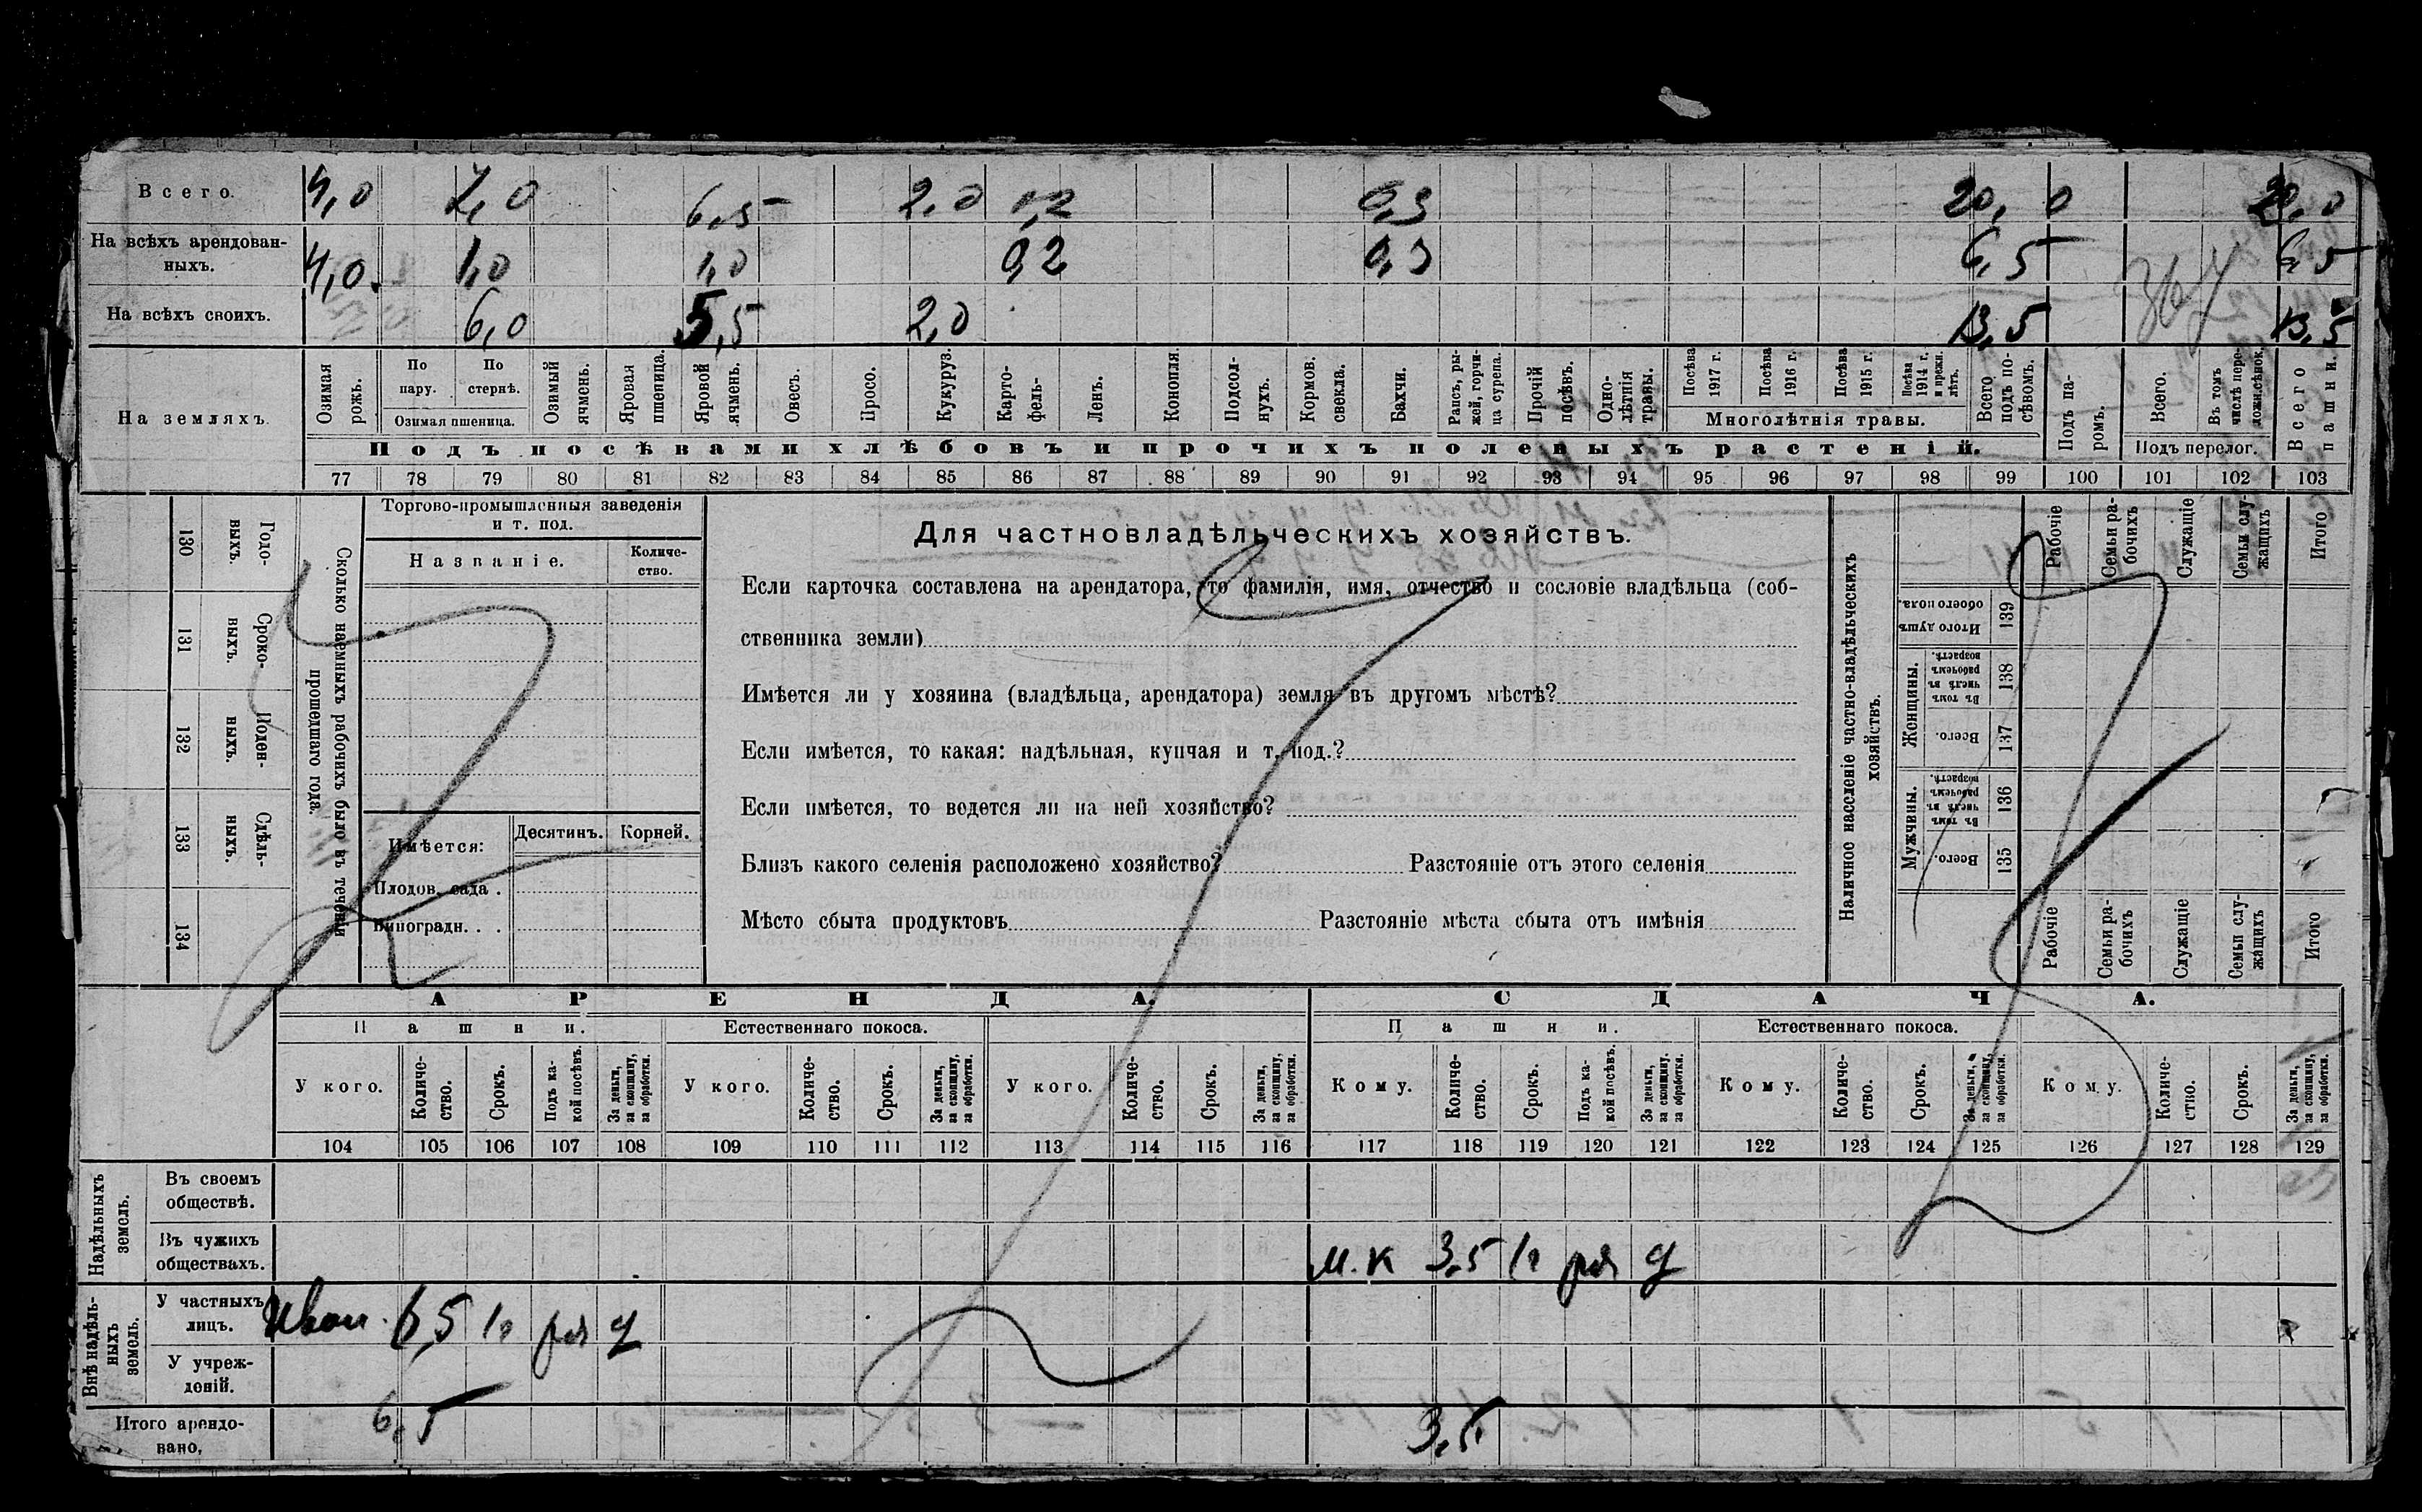 Всего. 4,0 7,0 6,5 2,0 0,2 0,3 20,0 20,0
На всѣхъ арендован-
ныхъ. 4,0. 1,0 1,0 0,2 0,3 6,5 6,5
На всѣхъ своихъ. 6,0 5,5 2,0 13,5 13,5
367
На земляхъ.
Озимая рожь.
По пару.
По стернѣ.
Озимая пшеница.
Озимый ячмень.
Яровая пшеница.
Яровой ячмень.
Овесъ.
Просо.
Кукуруз.
Карто-
фель-
Ленъ.
Конопля.
Подсол-
нухъ.
Кормов.
свекла.
Бахчи.
Рапсъ, ры-
жей, горчи-
ца сурепа.
Прочій
посѣвъ.
Одно-
лѣтнія
травы.
Посѣва
1917 г.
Посѣва
1916 г.
Посѣва
1915 г.
Посѣва
1914 г.
и прежн.
лѣтъ.
Многолѣтнія травы.
Всего
подъ по-
сѣвомъ.
Подъ па-
ромъ.
Всего.
Въ томъ
числѣ пере-
ложн.сѣнок.
Подъ перелог.
Всего
пашни.
Подъ посѣвами хлѣбовъ и прочихъ полевыхъ растеній.
77 78 79 80 81 82 83 84 85 86 87 88 89 90 91 92 93 94 95 96 97 98 99 100 101 102 103
130 Годо-
выхъ.
131 Сроко-
выхъ.
132 Поден-
ныхъ.
133 Сдѣль-
ныхъ.
134
Сколько наемныхъ рабочихъ было въ теченіи
прошедшаго года.
Торгово-промышленныя заведенія
и т. под.
Названіе.
Количе-
ство.
Имѣется:
Десятинъ. Корней.
Плодов. сада .
Виноградн. . .
Для частновладѣльческихъ хозяйствъ.
Если карточка составлена на арендатора, то фамилія, имя, отчество и сословіе владѣльца (соб-
ственника земли)
Имѣется ли у хозяина (владѣльца, арендатора) земля въ другомъ мѣстѣ?
Если имѣется, то какая: надѣльная, купчая и т. под.?
Если имѣется, то ведется ли на ней хозяйство?
Близъ какого селенія расположено хозяйство? Разстояніе отъ этого селенія
Мѣсто сбыта продуктовъ Разстояніе мѣста сбыта отъ имѣнія
Наличное населеніе частно-владѣльческихъ
хозяйствъ.
Рабочіе
Семьи ра-
бочихъ
Служащіе
Семьи слу-
жащихъ
Итого
Итого душъ
обоего пола.
139
Женщины.
Въ томъ
числѣ въ
рабочемъ
возрастѣ.
138
Всего.
137
Мужчины.
Въ томъ
числѣ въ
рабочемъ
возрастѣ.
136
Всего.
135
Рабочіе
Семьи ра-
бочихъ
Служащіе
Семьи слу-
жащихъ
Итого
АРЕНДА.
СДАЧА.
Пашни.
Естественнаго покоса.
Пашни.
Естественнаго покоса.
У кого.
Количе-
ство.
Срокъ.
Подъ ка-
кой посѣвъ.
За деньги,
за скопщину,
за обработки.
У кого.
Количе-
ство.
Срокъ.
За деньги,
за скопщину,
за обработки.
У кого.
Количе-
ство.
Срокъ.
За деньги,
за скопщину,
за обработки.
Кому.
Количе-
ство.
Срокъ.
Подъ ка-
кой посѣвъ.
За деньги,
за скопщину,
за обработки.
Кому.
Количе-
ство.
Срокъ.
За деньги,
за скопщину,
за обработки.
Кому.
Количе-
ство.
Срокъ.
За деньги,
за скопщину,
за обработки.
104 105 106 107 108 109 110 111 112 113 114 115 116 117 118 119 120 121 122 123 124 125 126 127 128 129
Надѣльныхъ
земель.
Въ своемъ
обществѣ.
Въ чужихъ
обществахъ. м.к 3,5 1г д
Внѣ надѣль-
ныхъ
земель.
У частныхъ
лицъ. Иван. 6,5 1г д
У учреж-
деній.
Итого арендо-
вано, 6,5 3,5